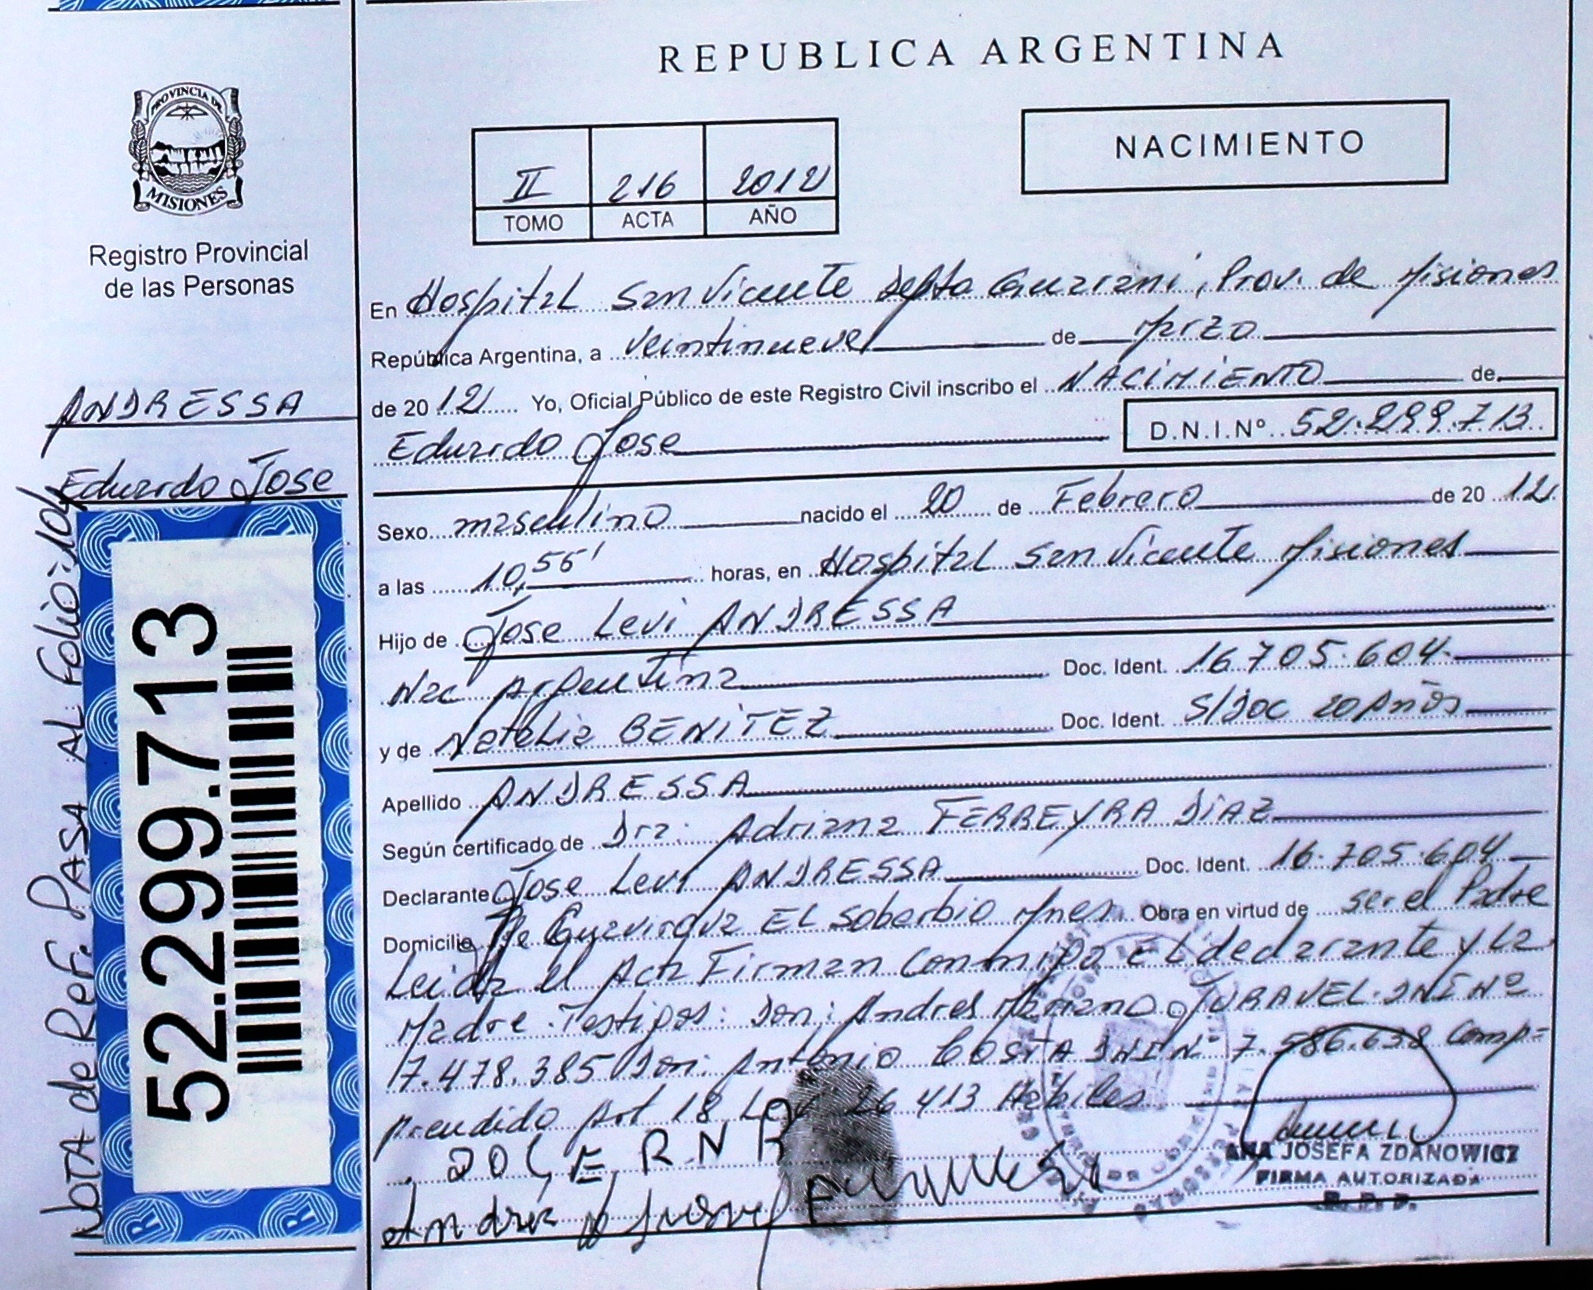 PROVINCIA DE
MISIONES
Registro Provincial
de las Personas
ANDRESSA
Eduardo Jose
NOTA de Ref. PASA AL Folio: 104
52.299.713
REPUBLICA ARGENTINA
NACIMIENTO
II 216 2012
TOMO ACTA AÑO
En Hospital San Vicente Depto Guarani, Prov. de Misiones
República Argentina, a veintinueve de Marzo
de 2012 Yo, Oficial Público de este Registro Civil inscribo el NACIMIENTO de
Eduardo Jose D.N.I.Nº 52.299.713
Sexo masculino nacido el 20 de Febrero de 2012
a las 10,56' horas, en Hospital San Vicente Misiones
Hijo de Jose Levi ANDRESSA
Nac Argentina Doc. Ident. 16.705.604
y de Natalia BENITEZ Doc. Ident. S/Doc 20 Años
Apellido ANDRESSA
Según certificado de Dra: Adriana FERREYRA DIAZ
Declarante Jose Levi ANDRESSA Doc. Ident. 16.705.604
Domicilio EL Soberbio Mnes Obra en virtud de ser el Padre
Leida el Acta Firman conmigo EL declarante y La
Madre. Testigos: Don: Andres Mariano DNI Nº
7.478.385 Don: Antonio COSTA DNI Nº 7.586.638 Comp=
prendido Art 18 Ley 26 413 Habiles
ANA JOSEFA ZDANOWICZ
FIRMA AUTORIZADA
R.P.P.